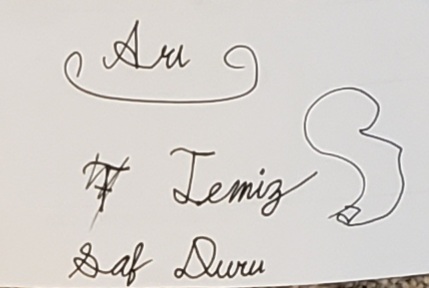 Arı
Temiz
Saf Duru